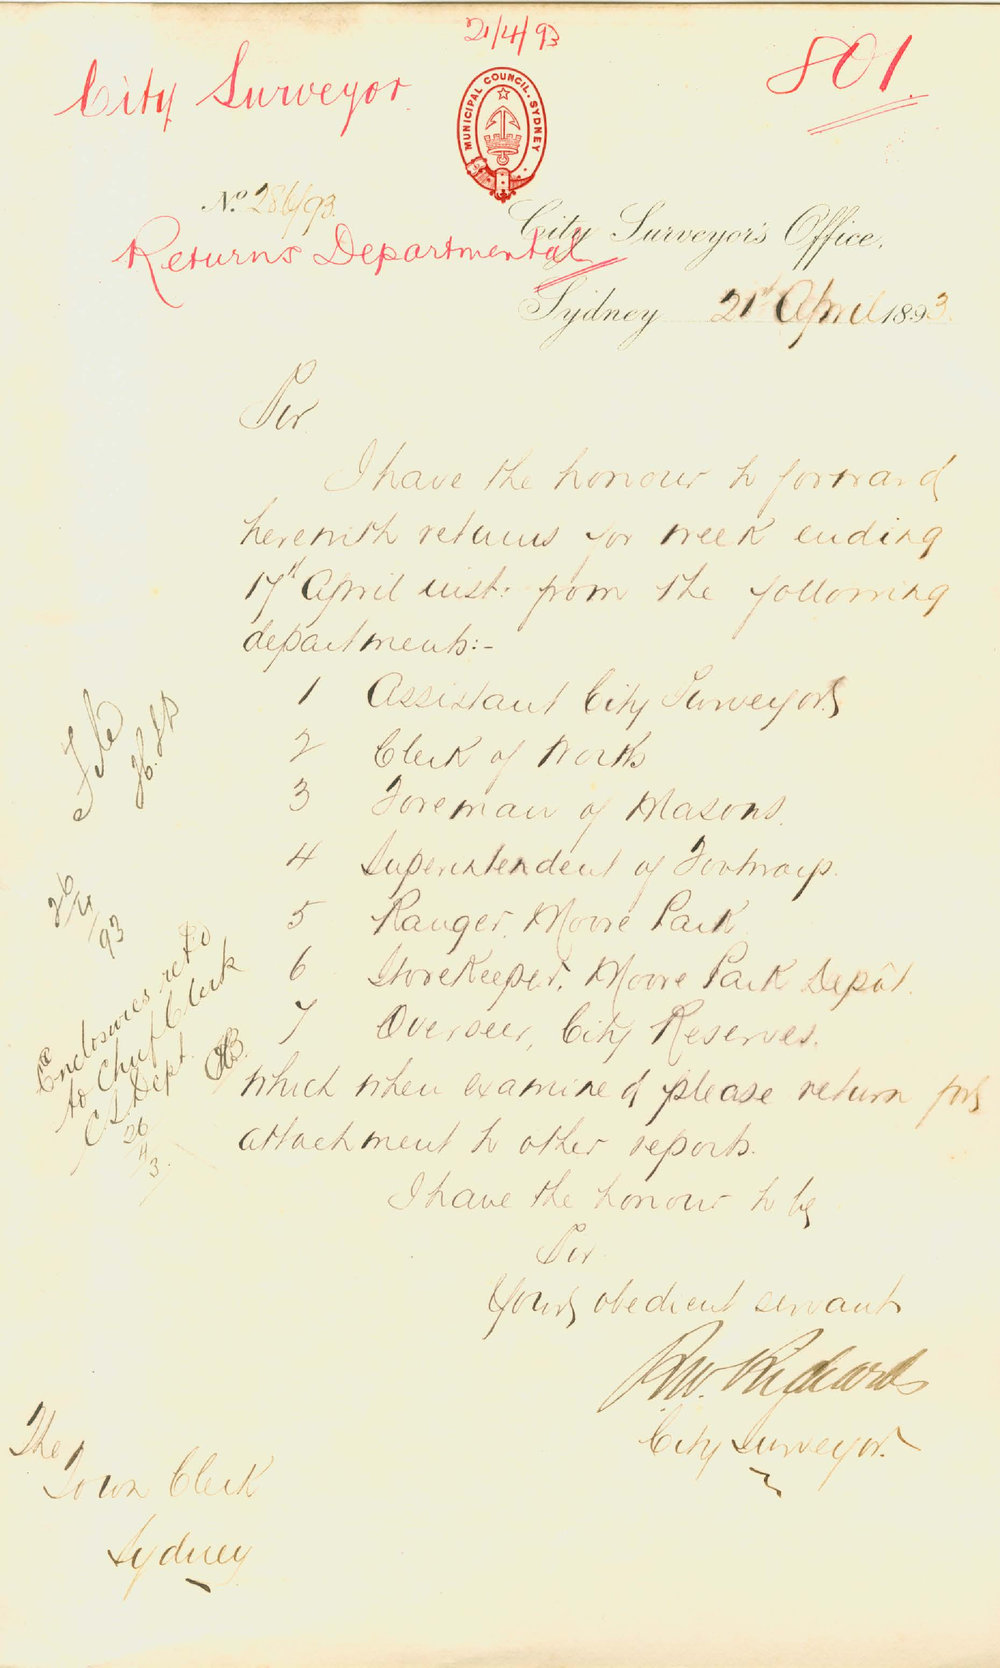 21/4/93
City Surveyor.
801.
MUNICIPAL COUNCIL. SYDNEY
No. 286/93.
City Surveyor's Office,
Returns Departmental
Sydney 21st April 1893.
Sir
I have the honour to forward
herewith returns for week ending
17th April inst: from the following
departments:-
1 Assistant City Surveyors
2 Clerk of Works
3 Foreman of Masons.
4 Superintendent of Footways.
5 Ranger, Moore Park
6 Storekeeper, Moore Park Depôt.
7 Overseer, City Reserves.
which when examined please return for
attachment to other reports.
I have the honour to be
Sir
Your obedient servant
R.W. Richards
City Surveyor.
The
Town Clerk
Sydney
File
26/4/93
Enclosures retd
to Chief Clerk
CS Dept.
26/4/3.